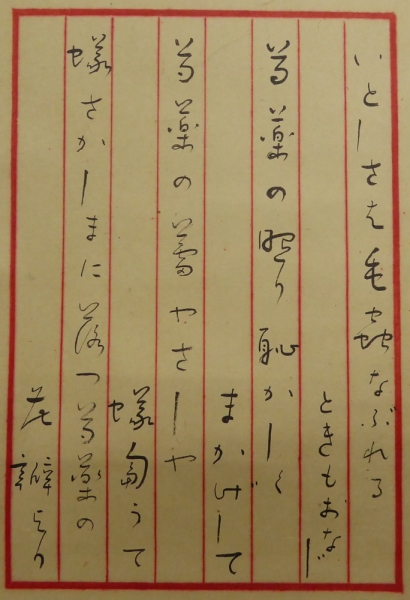 いとしさは毛蟲なぶれる
ときもおなじ
芍薬の照り恥かしく
まかげして
芍薬の蕾やさしや
蟻うて
蟻さかしまに落つ芍薬の
花瓣より